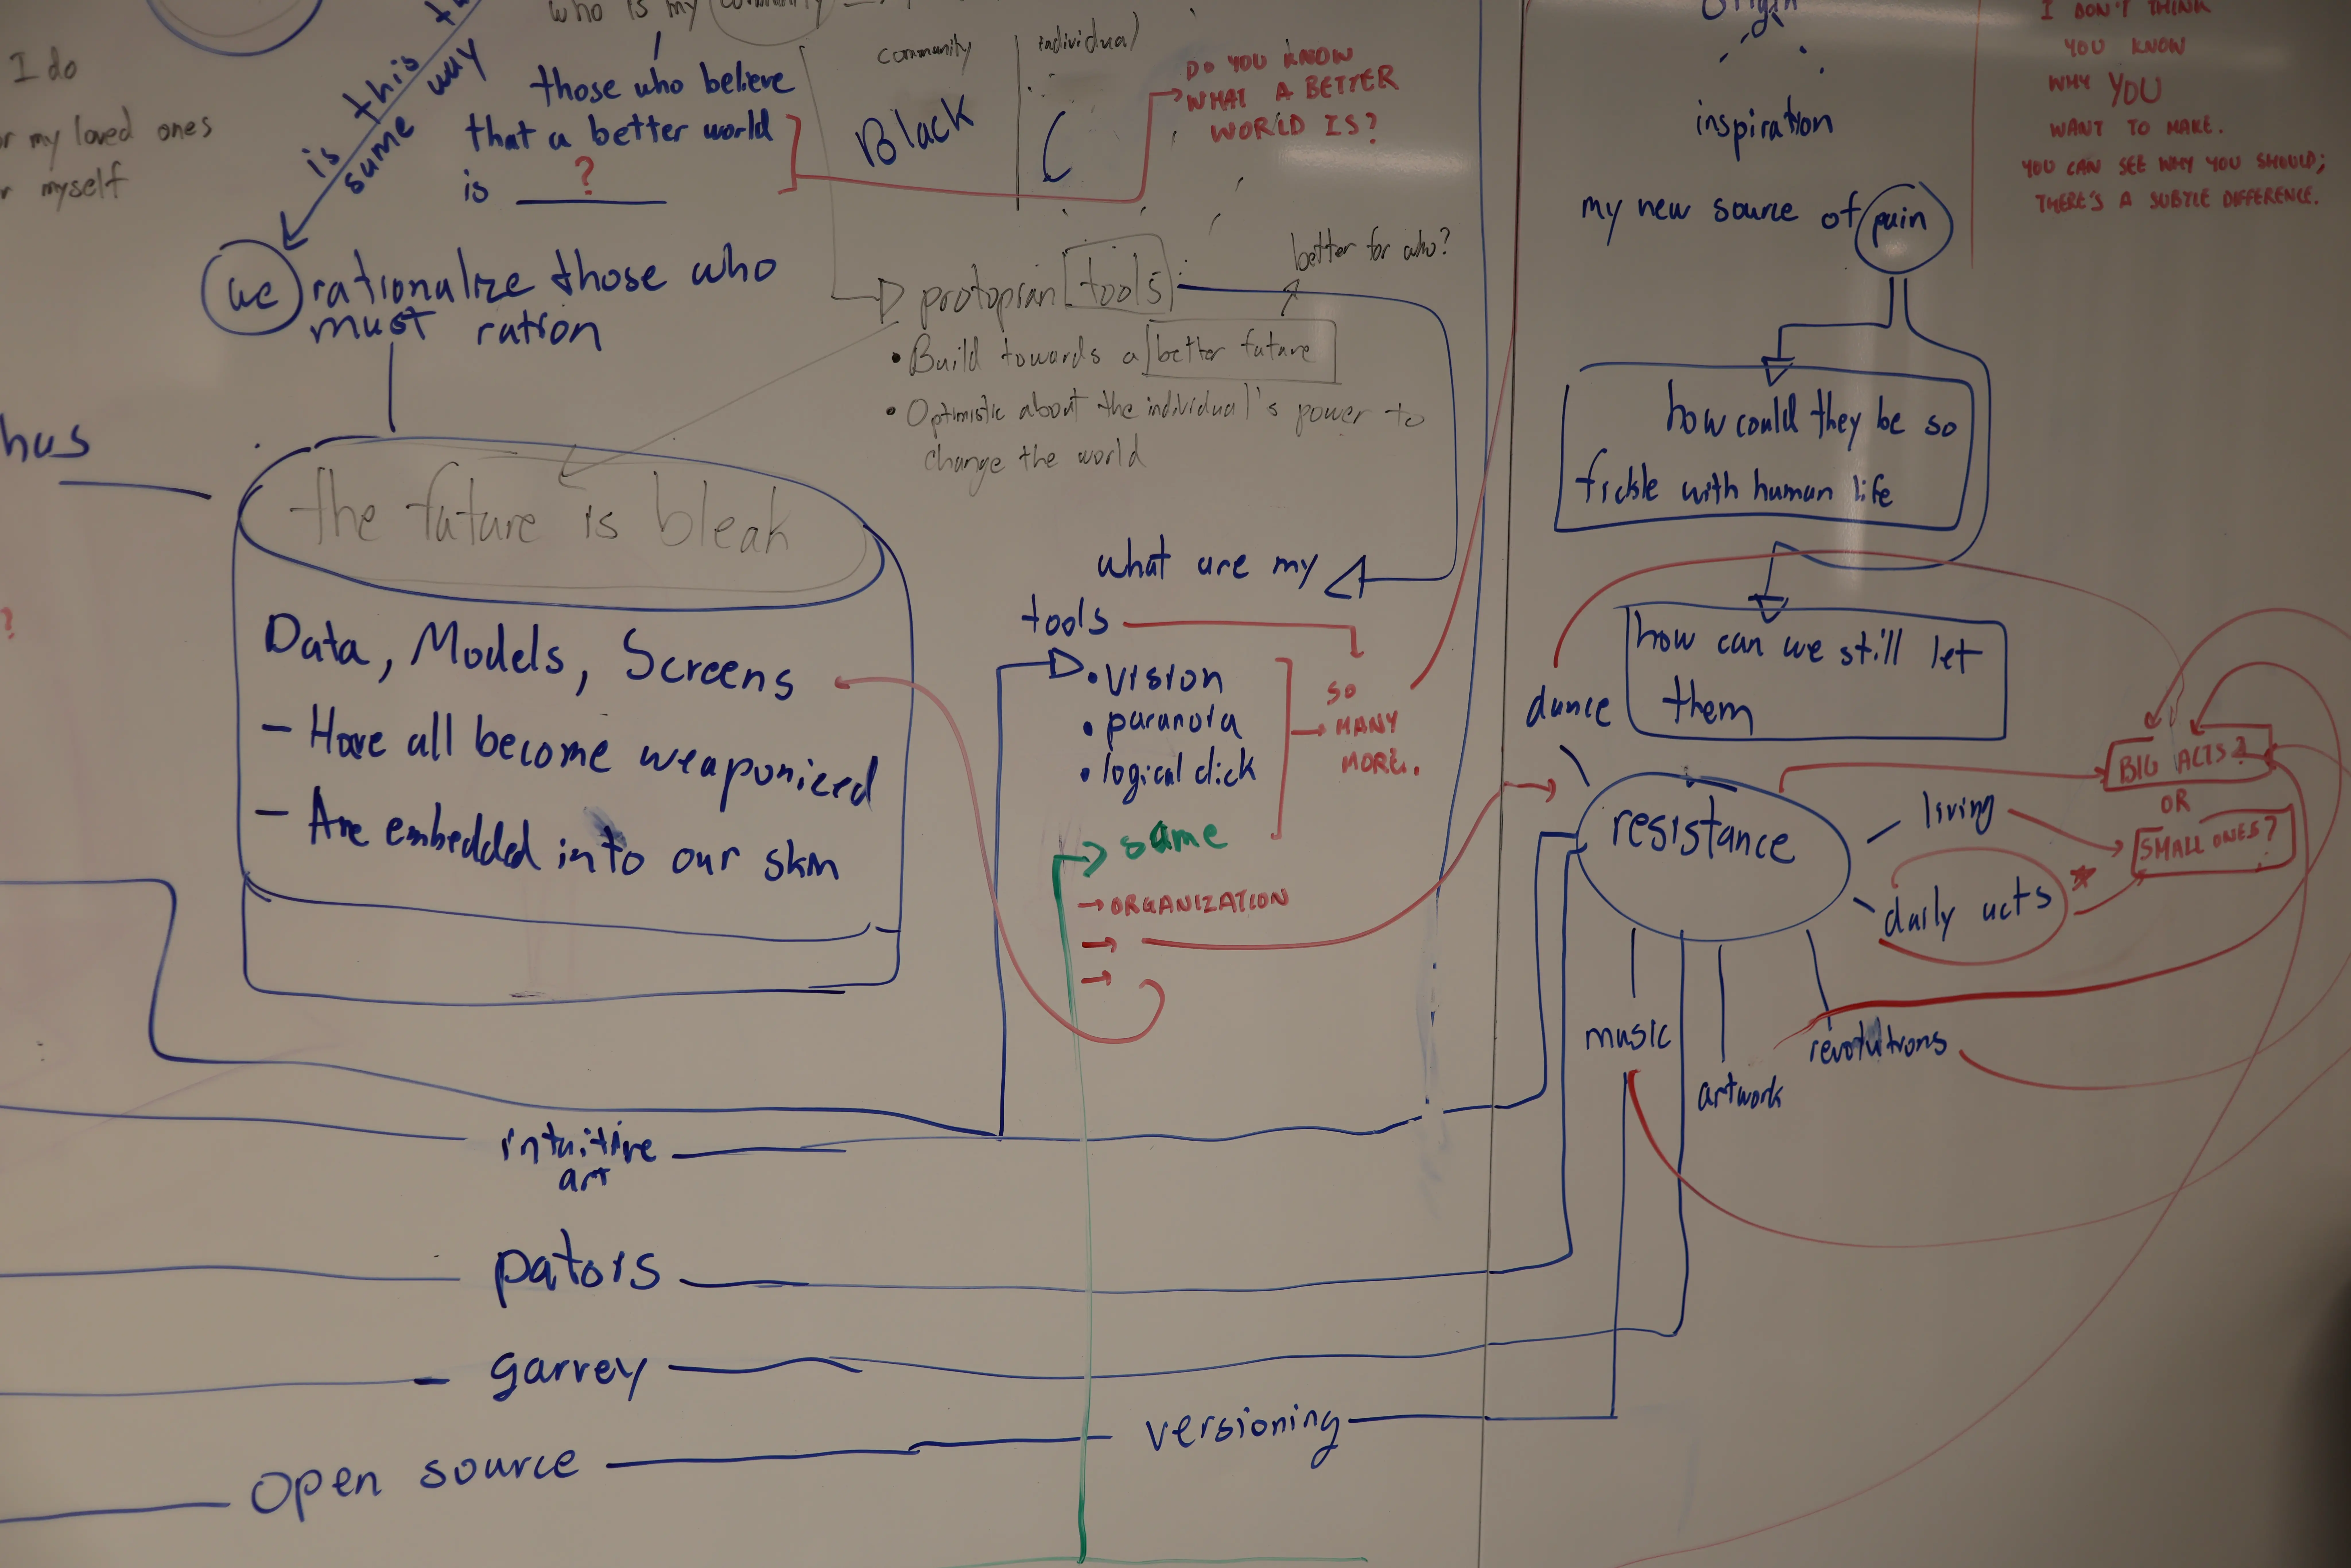 I do
my loved ones
myself
is this
same way
who is my community
those who believe
that a better world
is ?
community
individual
Black
DO YOU KNOW
WHAT A BETTER
WORLD IS?
we rationalize those who
must ration
protopian tools
better for who?
• Build towards a better future
• Optimistic about the individual's power to
change the world
hus
the future is bleak
Data, Models, Screens
- Have all become weaponized
- Are embedded into our skin
?
what are my
tools
• vision
• paranoia
• logical click
SO
MANY
MORE.
same
→ ORGANIZATION
→
→
intuitive
art
pators
garvey
open source
versioning
origin
inspiration
my new source of pain
how could they be so
fickle with human life
how can we still let
them
dance
resistance
living
daily acts
music
artwork
revolutions
BIG ACTS?
OR
SMALL ONES?
I DON'T THINK
YOU KNOW
WHY YOU
WANT TO MAKE.
YOU CAN SEE WHY YOU SHOULD;
THERE'S A SUBTLE DIFFERENCE.